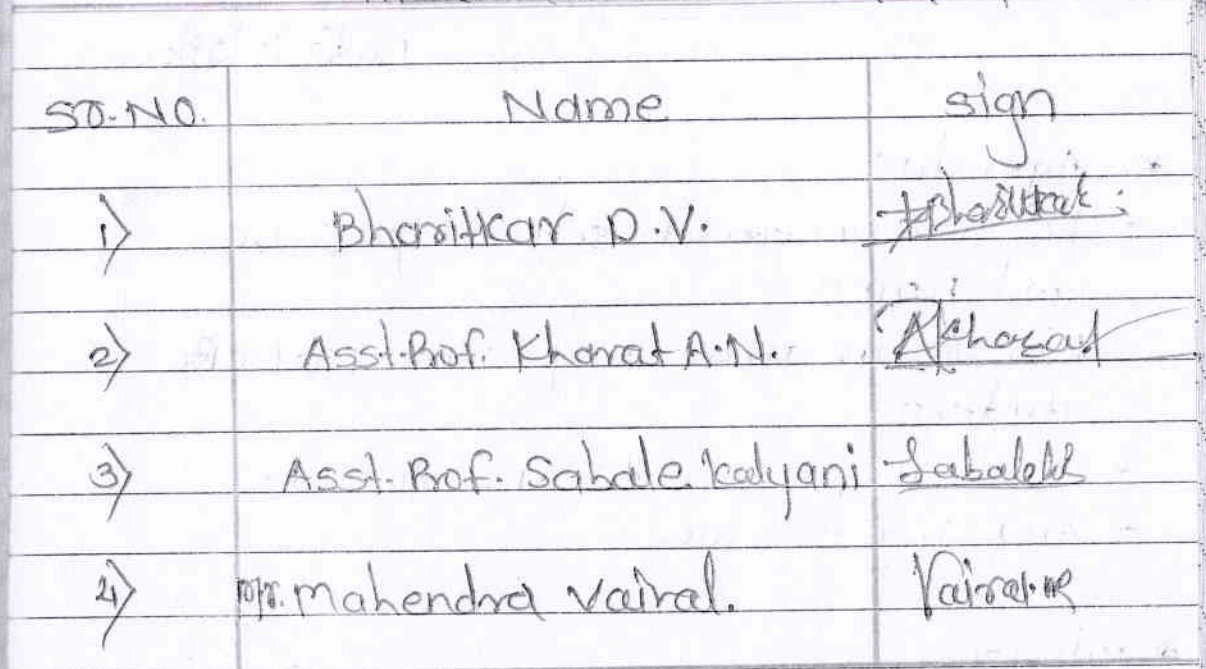 Sr. No. Name Sign
1) Bharitkar D.V. Bharitkar
2) Asst. Prof. Kharat A.N. AKharat
3) Asst. Prof. Sabale Kalyani Sabale
4) Mr. Mahendra Vairal. Vairal